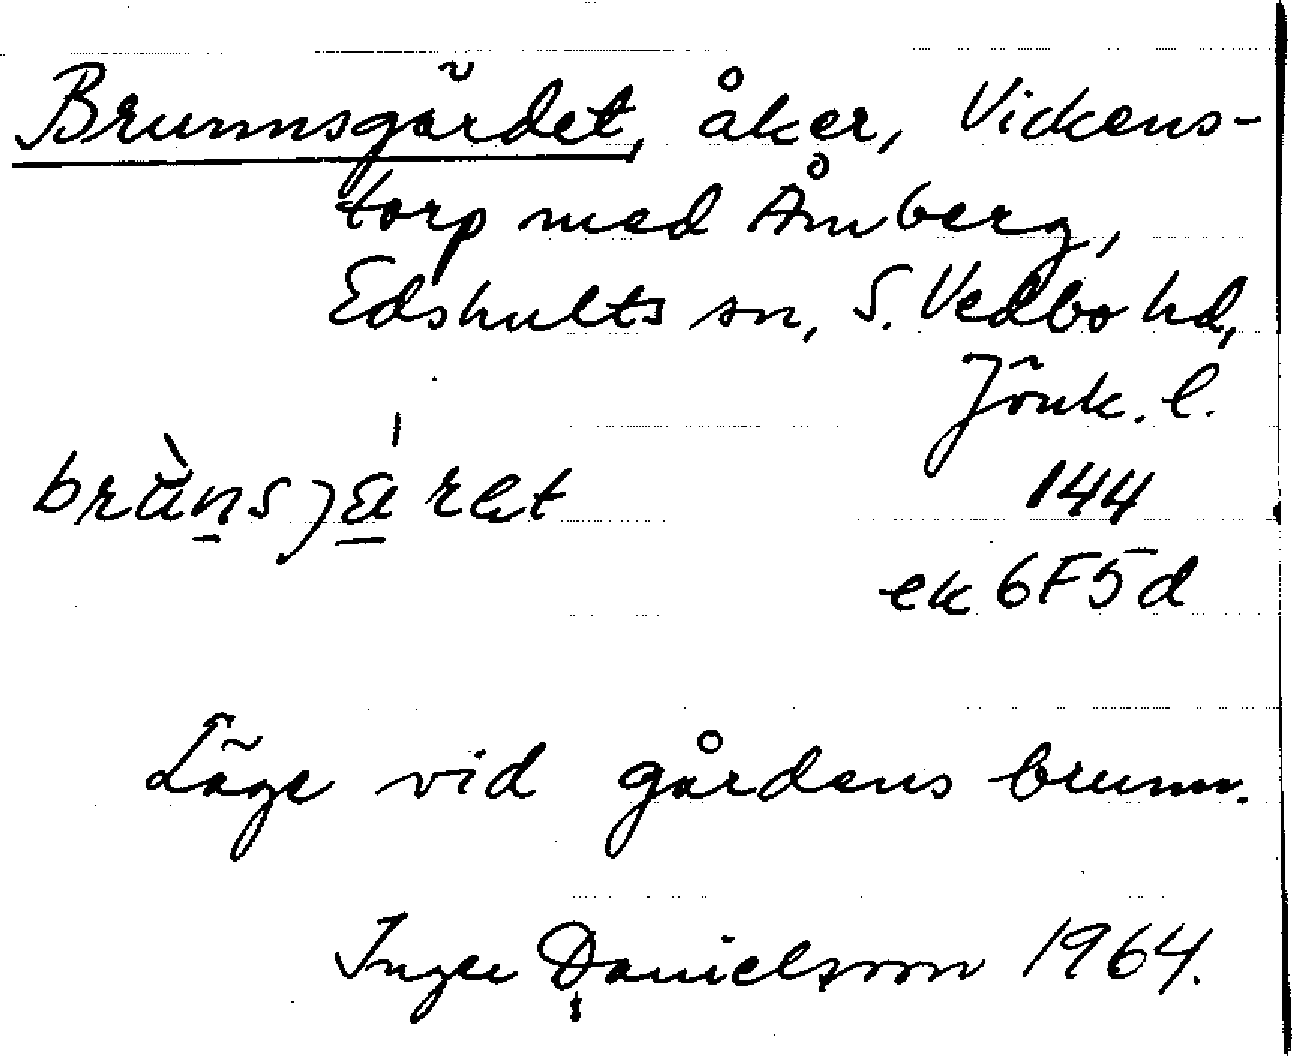 Brunnsgärdet, åker, Vickens-
torp med Åmberg,
Edshults sn, S. Vedbo hd,
Jönk. l.
144
ek 6F5d
Läge vid gårdens brunn.
Inger Danielsson 1964.